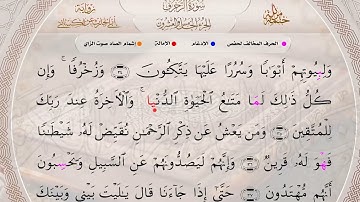 سورة الزخرف
الحرف المخالف لحفص الادغام الامالة إشمام الصاد صوت الزاي
وَلِبُيُوتِهِمْ أَبْوَٰبًا وَسُرُرًا عَلَيْهَا يَتَّكِـُٔونَ ٣٤ وَزُخْرُفًا ۚ وَإِن
كُلُّ ذَٰلِكَ لَمَا مَتَٰعُ ٱلْحَيَوٰةِ ٱلدُّنْيَا ۚ وَٱلْءَاخِرَةُ عِندَ رَبِّكَ
لِلْمُتَّقِينَ ٣٥ وَمَن يَعْشُ عَن ذِكْرِ ٱلرَّحْمَٰنِ نُقَيِّضْ لَهُۥ شَيْطَٰنًا
فَهْوَ لَهُۥ قَرِينٌ ٣٦ وَإِنَّهُمْ لَيَصُدُّونَهُمْ عَنِ ٱلسَّبِيلِ وَيَحْسِبُونَ
أَنَّهُم مُّهْتَدُونَ ٣٧ حَتَّىٰٓ إِذَا جَآءَنَا قَالَ يَٰلَيْتَ بَيْنِى وَبَيْنَكَ